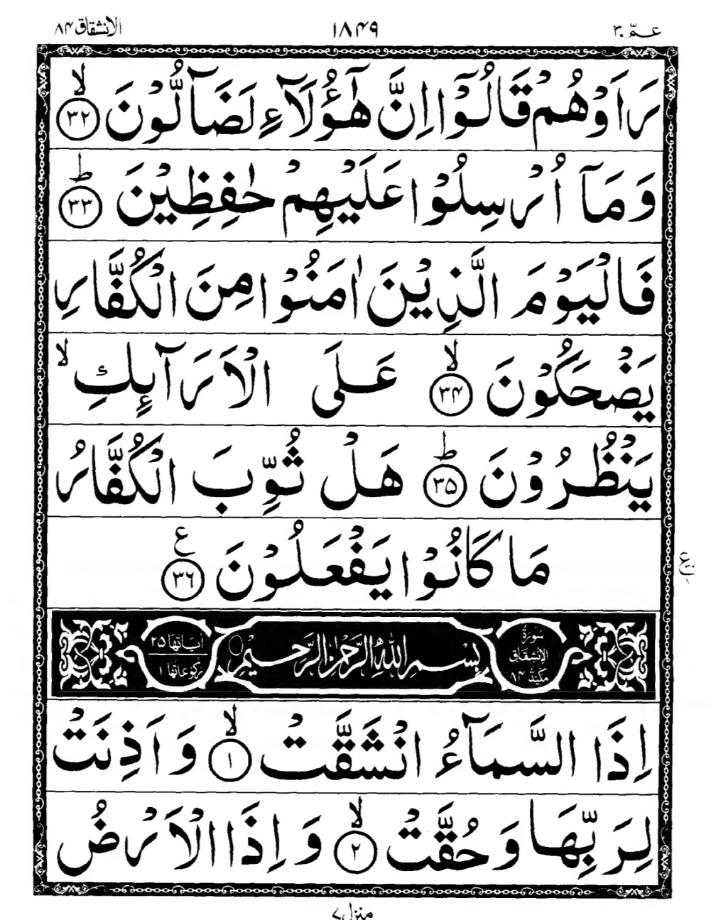 عــمّ ٣٠ ١٨٤٩ الانشقاق ٨٤
رَاَوْهُمْ قَالُوْۤا اِنَّ هٰۤؤُلَآءِ لَضَآلُّوْنَ ۙ‏﴿۳۲﴾
وَمَاۤ اُرْسِلُوْا عَلَيْهِمْ حٰفِظِيْنَ ؕ‏﴿۳۳﴾
فَالْيَوْمَ الَّذِيْنَ اٰمَنُوْا مِنَ الْكُفَّارِ
يَضْحَكُوْنَ ۙ‏﴿۳۴﴾ عَلَى الْاَرَآىِٕكِ ۙ
يَنْظُرُوْنَ ؕ‏﴿۳۵﴾ هَلْ ثُوِّبَ الْكُفَّارُ
مَا كَانُوْا يَفْعَلُوْنَ ﴿۳۶﴾ ع
ع
سورة الانشقاق مكية ٨٤
بسم الله الرحمن الرحيم
اٰياتها ٢٥
ركوعاتها ١
اِذَا السَّمَآءُ انْشَقَّتْ ۙ‏﴿۱﴾ وَاَذِنَتْ
لِرَبِّهَا وَحُقَّتْ ۙ‏﴿۲﴾ وَاِذَا الْاَرْضُ
منزل ٧